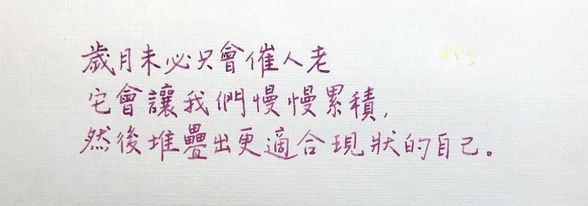 歲月未必只會催人老
它會讓我們慢慢累積,
然後堆疊出更適合現狀的自己。